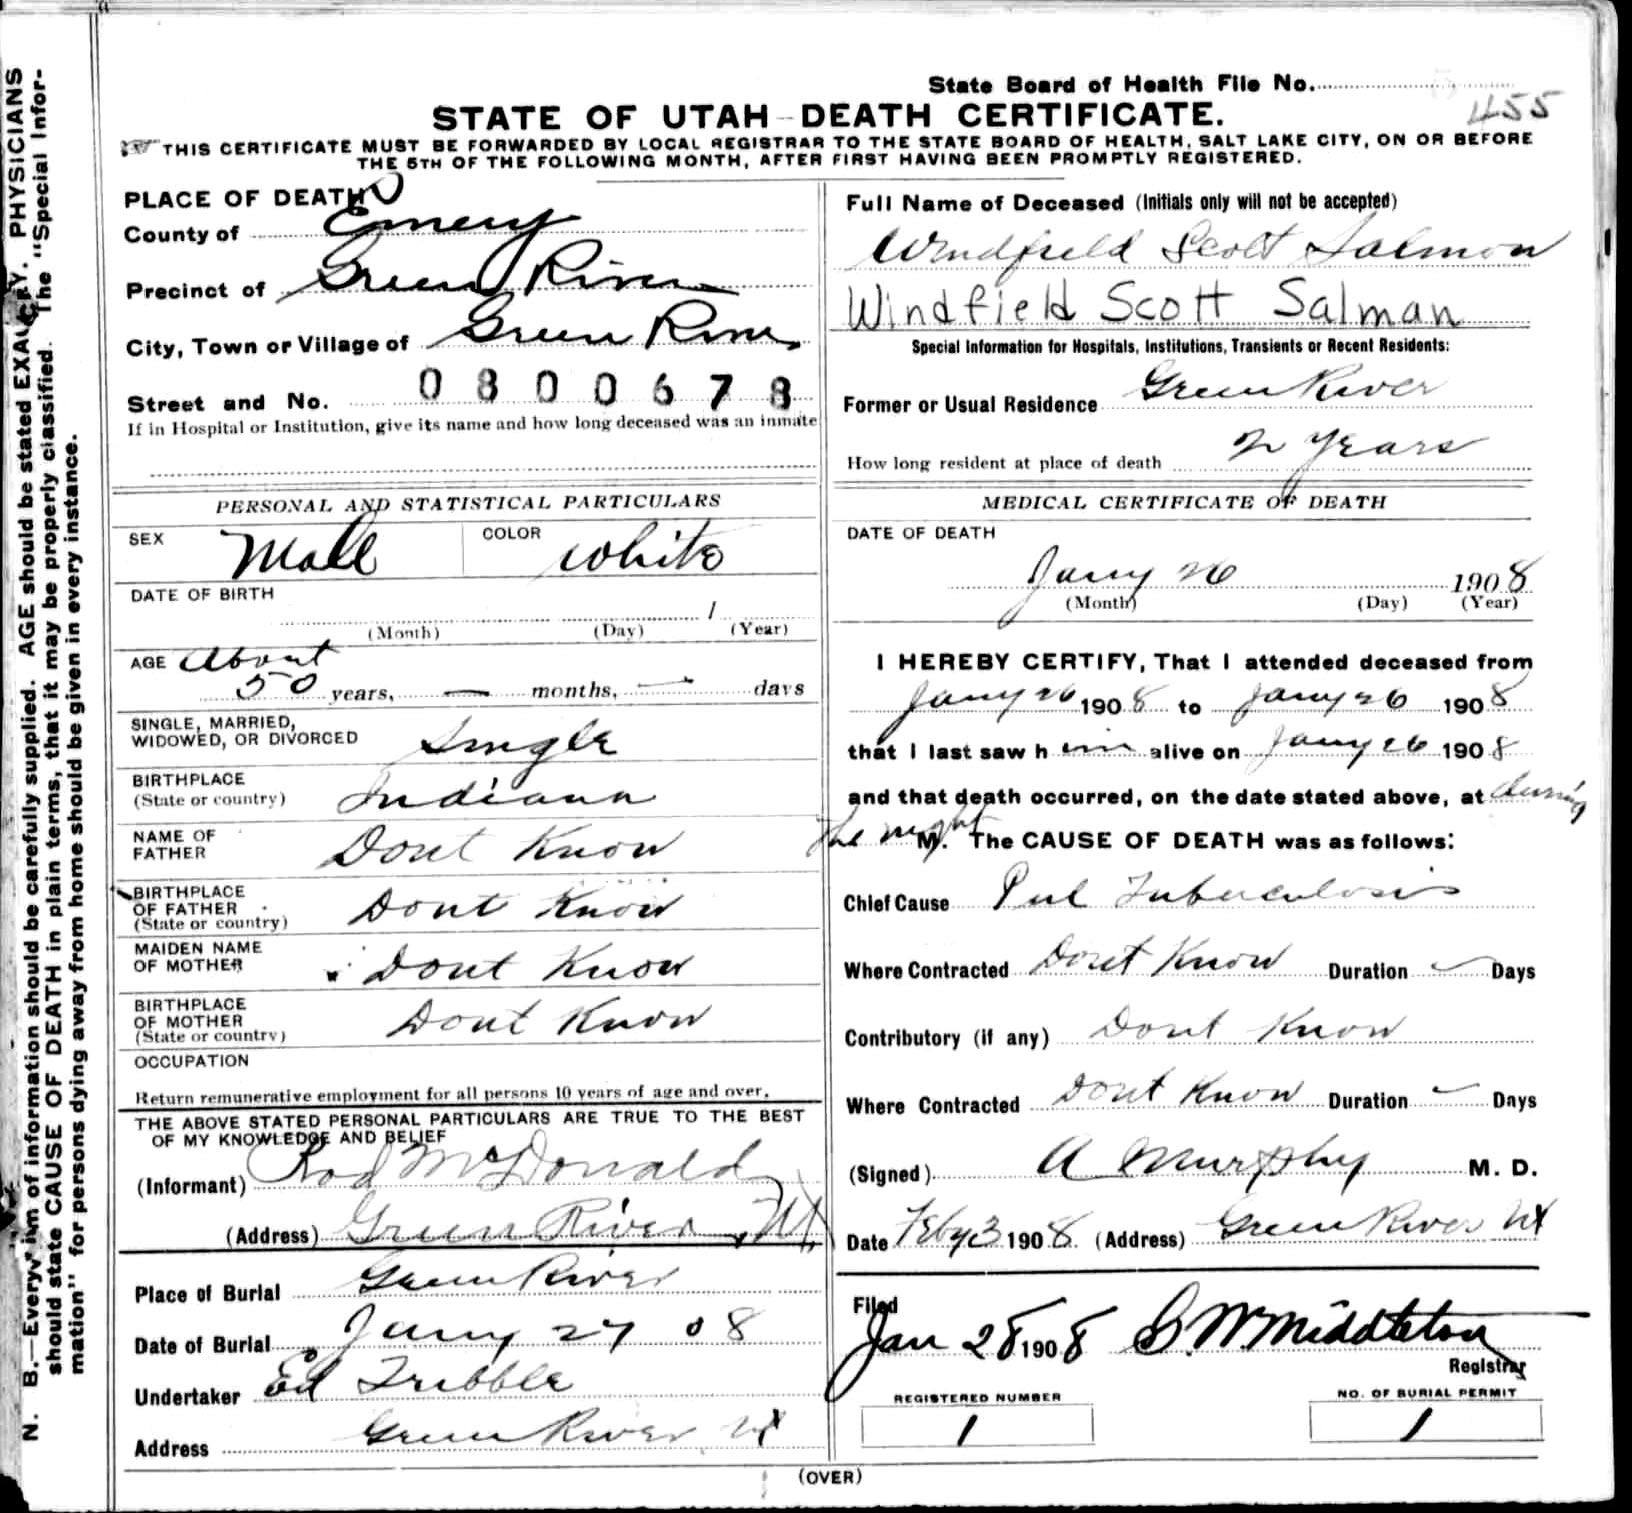 State Board of Health File No. 455
STATE OF UTAH—DEATH CERTIFICATE.
THIS CERTIFICATE MUST BE FORWARDED BY LOCAL REGISTRAR TO THE STATE BOARD OF HEALTH, SALT LAKE CITY, ON OR BEFORE
THE 5TH OF THE FOLLOWING MONTH, AFTER FIRST HAVING BEEN PROMPTLY REGISTERED.
PLACE OF DEATH
County of Emery
Precinct of Green River
City, Town or Village of Green River
Street and No. 0800678
If in Hospital or Institution, give its name and how long deceased was an inmate
PERSONAL AND STATISTICAL PARTICULARS
SEX Male COLOR White
DATE OF BIRTH
1
(Month) (Day) (Year)
AGE About
50 years, — months, — days
SINGLE, MARRIED,
WIDOWED, OR DIVORCED Single
BIRTHPLACE
(State or country) Indiana
NAME OF
FATHER Dont Know
BIRTHPLACE
OF FATHER Dont Know
(State or country)
MAIDEN NAME
OF MOTHER Dont Know
BIRTHPLACE
OF MOTHER Dont Know
(State or country)
OCCUPATION
Return remunerative employment for all persons 10 years of age and over.
THE ABOVE STATED PERSONAL PARTICULARS ARE TRUE TO THE BEST
OF MY KNOWLEDGE AND BELIEF
(Informant) Rod McDonald
(Address) Green River, Ut
Place of Burial Green River
Date of Burial Jany 27 08
Undertaker Ed Tribble
Address Green River Ut
Full Name of Deceased (Initials only will not be accepted)
Windfield Scott Salmon
Windfield Scott Salman
Special Information for Hospitals, Institutions, Transients or Recent Residents:
Former or Usual Residence Green River
How long resident at place of death 2 Years
MEDICAL CERTIFICATE OF DEATH
DATE OF DEATH
Jany 26 1908
(Month) (Day) (Year)
I HEREBY CERTIFY, That I attended deceased from
Jany 26 1908 to Jany 26 1908
that I last saw h im alive on Jany 26 1908
and that death occurred, on the date stated above, at during
the night M. The CAUSE OF DEATH was as follows:
Chief Cause Pul Tuberculosis
Where Contracted Dont Know Duration — Days
Contributory (if any) Dont Know
Where Contracted Dont Know Duration — Days
(Signed) A Murphy M. D.
Date Feby 3 1908 (Address) Green River Ut
Filed
Jan 28 1908 S. W. Middleton
Registrar
REGISTERED NUMBER NO. OF BURIAL PERMIT
1 1
(OVER)
N. B.—Every item of information should be carefully supplied. AGE should be stated EXACTLY. PHYSICIANS
should state CAUSE OF DEATH in plain terms, that it may be properly classified. The "Special Infor-
mation" for persons dying away from home should be given in every instance.